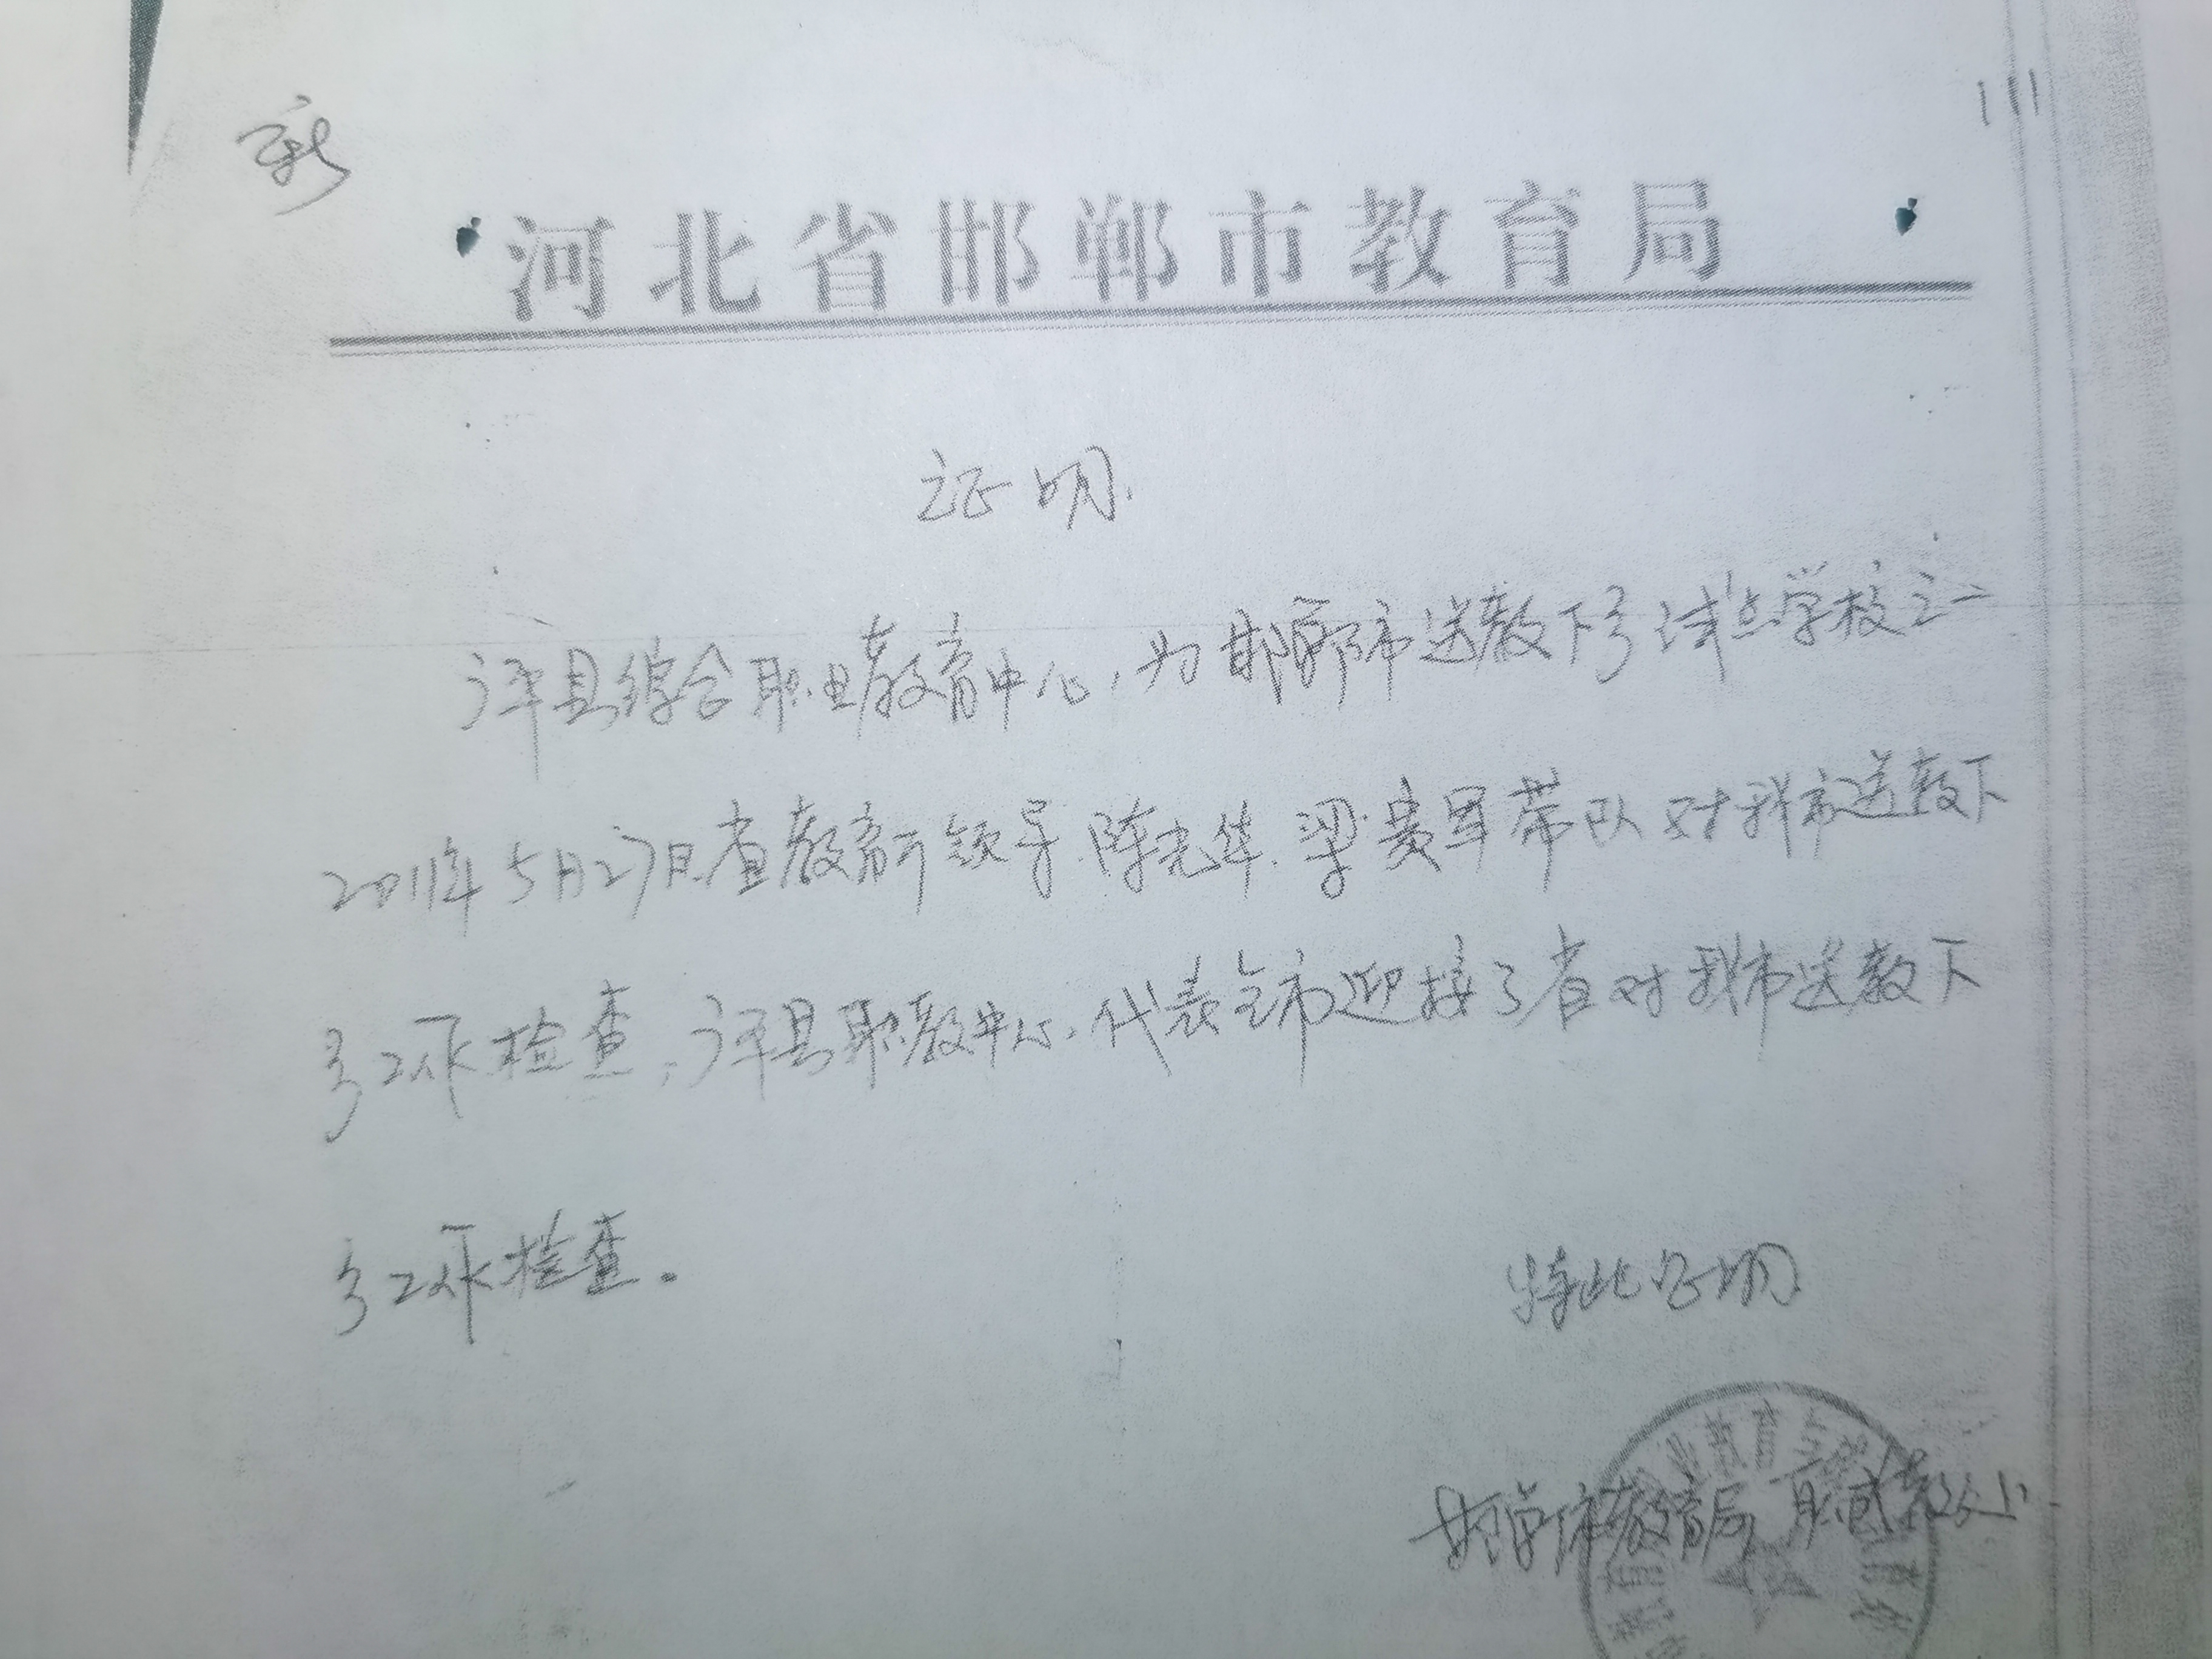 新
111
河北省邯郸市教育局
证明
广平县综合职业教育中心，为邯郸市送教下乡试点学校之一
2011年5月27日省教育厅领导陈光华.梁贵军带队对我市送教下
乡工作检查，广平县职教中心.代表全市迎接了省对我市送教下
乡工作检查。
特此证明
业教育与成
邯郸市教育局职成教